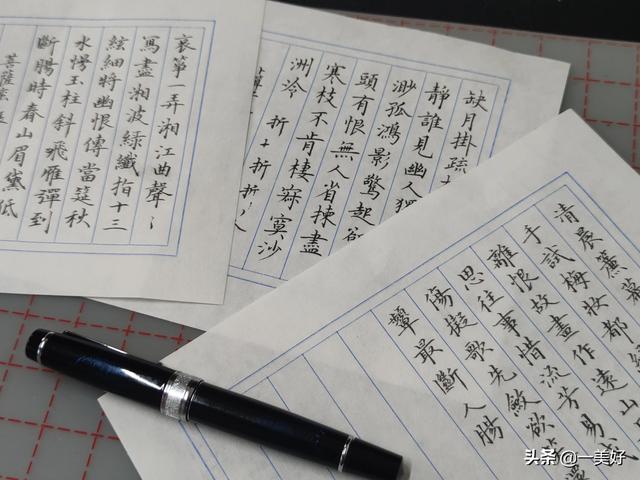 哀箏一弄湘江曲聲〻
寫盡湘波綠纖指十三
絃細將幽恨傳當筵秋
水慢玉柱斜飛雁彈到
斷腸時春山眉黛低
菩薩
缺月掛疏
靜誰見幽人獨
渺孤鴻影驚起卻
頭有恨無人省揀盡
寒枝不肯棲寂寞沙
洲冷 折 十 折 折
清晨簾幕
手試梅妝都緣
離恨故畫作遠山
思往事惜流芳易成
傷擬歌先斂欲笑還
顰最斷人腸
头条 @一美好